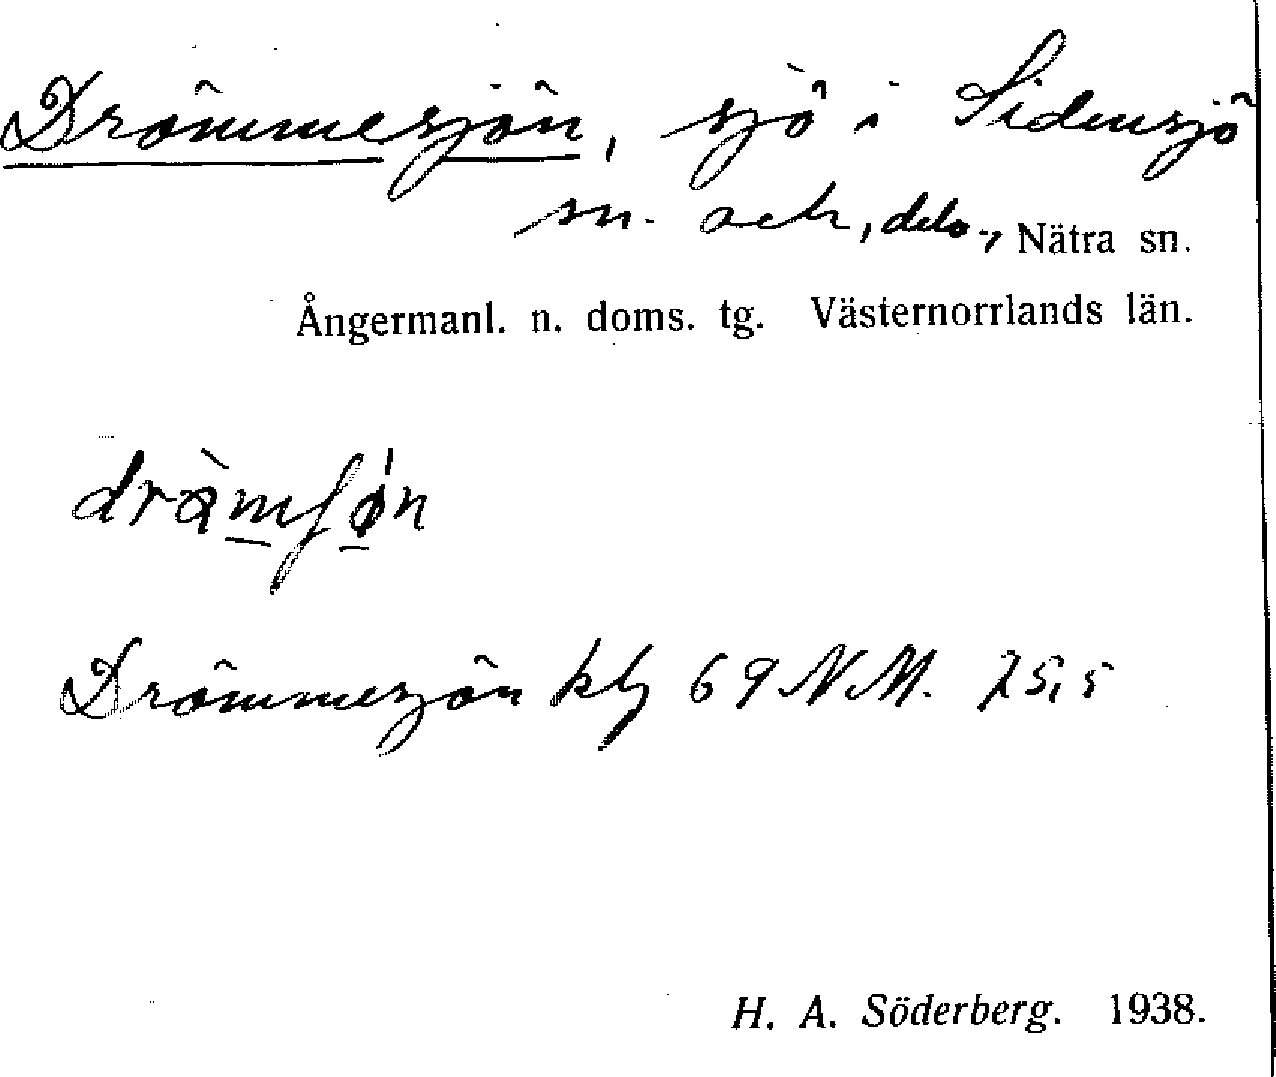 Drömmesjön, sjö i Sidensjö
sn. och, dels, Nätra sn.
Ångermanl. n. doms. tg. Västernorrlands län.
Drömmesjön kbl 69 N.M. 75,5
H. A. Söderberg. 1938.